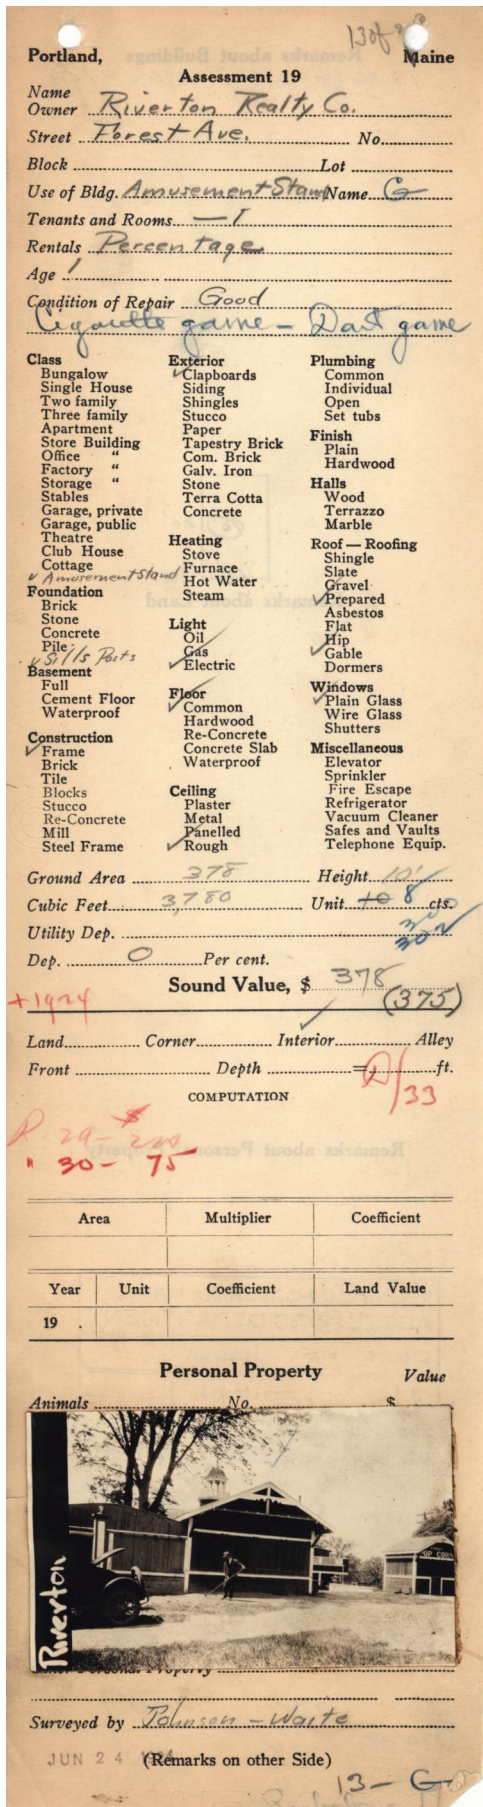 13 of
Portland, Maine
Assessment 19
Name
Owner Riverton Realty Co.
Street Forest Ave. No.
Block Lot
Use of Bldg. Amusement Stand Name G
Tenants and Rooms — 1
Rentals Percentage
Age 1
Condition of Repair Good
Cigarette game — Dart game
Class
Bungalow
Single House
Two family
Three family
Apartment
Store Building
Office "
Factory "
Storage "
Stables
Garage, private
Garage, public
Theatre
Club House
Cottage
✓ Amusement Stand
Foundation
Brick
Stone
Concrete
Pile
✓ Sills Posts
Basement
Full
Cement Floor
Waterproof
Construction
✓ Frame
Brick
Tile
Blocks
Stucco
Re-Concrete
Mill
Steel Frame
Exterior
✓ Clapboards
Siding
Shingles
Stucco
Paper
Tapestry Brick
Com. Brick
Galv. Iron
Stone
Terra Cotta
Concrete
Heating
Stove
Furnace
Hot Water
Steam
Light
Oil
Gas
✓ Electric
Floor
✓ Common
Hardwood
Re-Concrete
Concrete Slab
Waterproof
Ceiling
Plaster
Metal
Panelled
✓ Rough
Plumbing
Common
Individual
Open
Set tubs
Finish
Plain
Hardwood
Halls
Wood
Terrazzo
Marble
Roof — Roofing
Shingle
Slate
Gravel
✓ Prepared
Asbestos
Flat
Hip
✓ Gable
Dormers
Windows
✓ Plain Glass
Wire Glass
Shutters
Miscellaneous
Elevator
Sprinkler
Fire Escape
Refrigerator
Vacuum Cleaner
Safes and Vaults
Telephone Equip.
Ground Area 378 Height 10'
Cubic Feet 3,780 Unit 10 8 cts.
Utility Dep. 300
302
Dep. 0 Per cent.
Sound Value, $ 378
+1924 (375)
Land Corner Interior ✓ Alley
Front Depth = ft.
D/33
COMPUTATION
R 29 - $200
" 30 - 75
Area Multiplier Coefficient
Year Unit Coefficient Land Value
19 .
Personal Property Value
Animals No. $
OP CORN
Riverton
Property
Surveyed by Johnson - Waite
JUN 24 1924 (Remarks on other Side)
13 - G